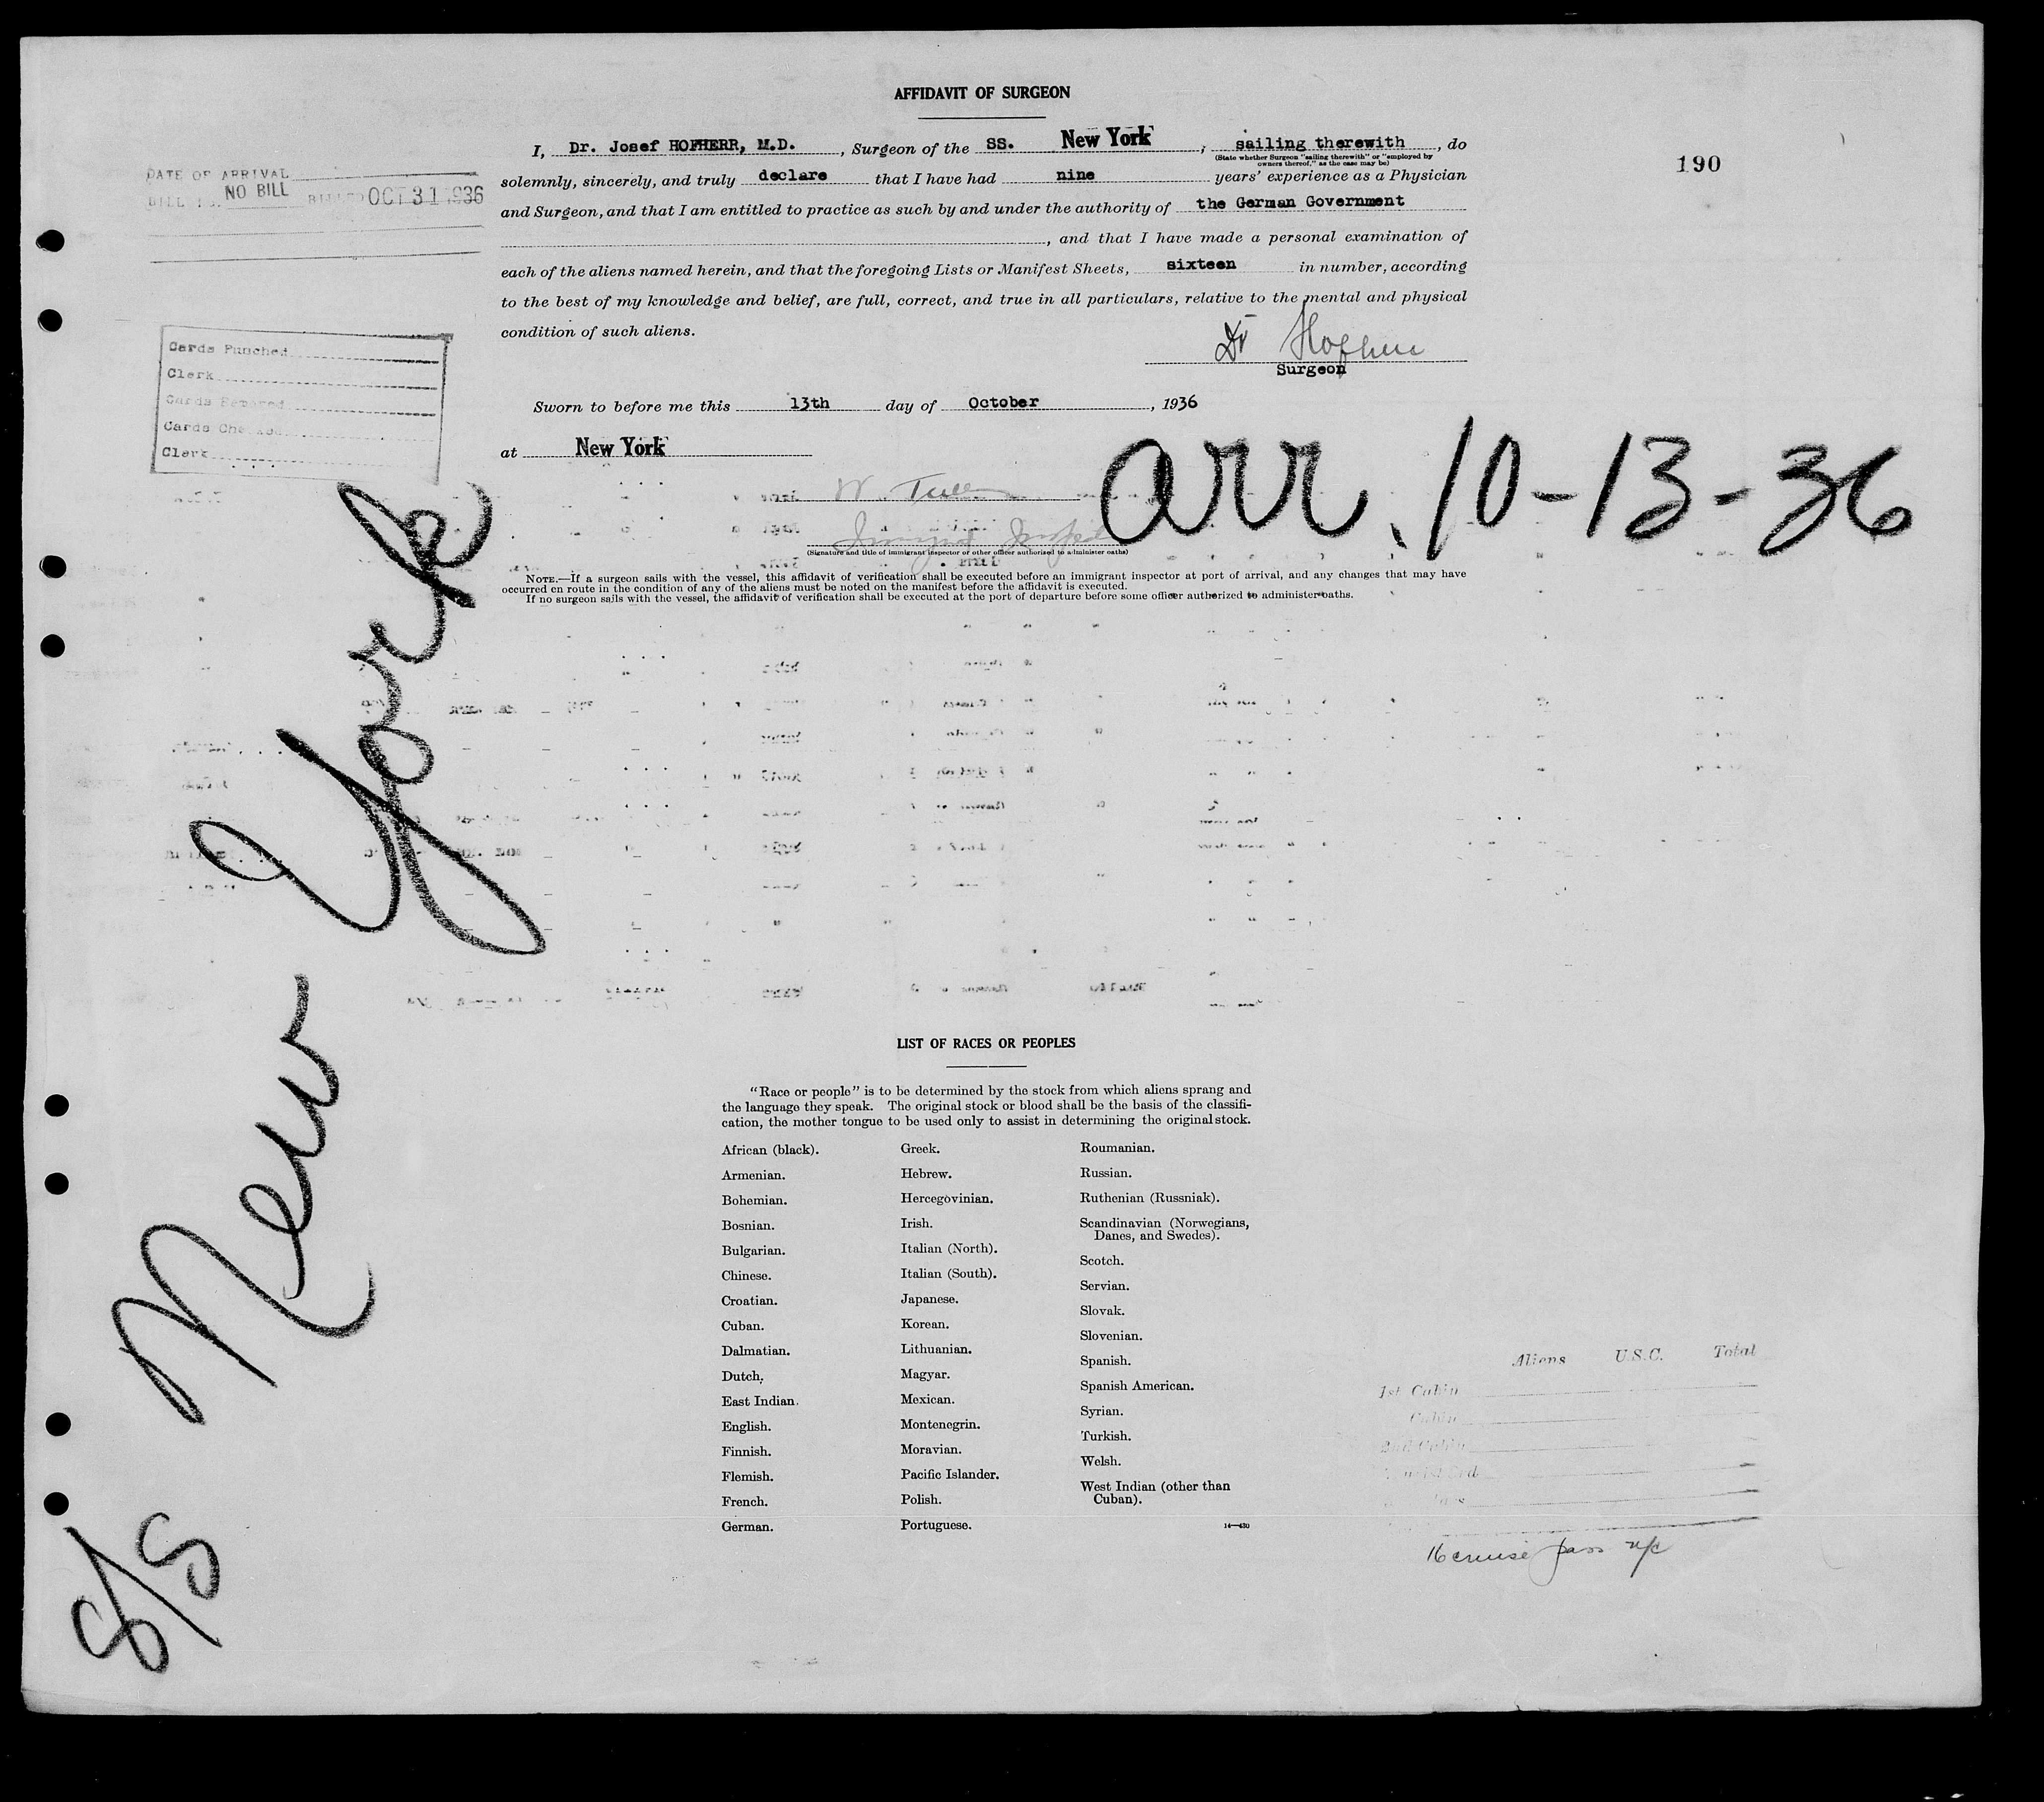 AFFIDAVIT OF SURGEON
190
I, Dr. Josef HOFHERR, M.D. , Surgeon of the SS. New York , sailing therewith , do
(State whether Surgeon "sailing therewith" or "employed by
owners thereof," as the case may be)
solemnly, sincerely, and truly declare that I have had nine years' experience as a Physician
and Surgeon, and that I am entitled to practice as such by and under the authority of the German Government
, and that I have made a personal examination of
each of the aliens named herein, and that the foregoing Lists or Manifest Sheets, sixteen in number, according
to the best of my knowledge and belief, are full, correct, and true in all particulars, relative to the mental and physical
condition of such aliens.
DATE OF ARRIVAL
BILL NO. NO BILL BILLED OCT 31 1936
Dr Hofherr
Surgeon
Cards Punched
Clerk
Cards
Cards Checked
Clerk
Sworn to before me this 13th day of October , 1936
at New York
arr. 10-13-36
W.
(Signature and title of immigrant inspector or other officer authorized to administer oaths)
NOTE.—If a surgeon sails with the vessel, this affidavit of verification shall be executed before an immigrant inspector at port of arrival, and any changes that may have
occurred en route in the condition of any of the aliens must be noted on the manifest before the affidavit is executed.
If no surgeon sails with the vessel, the affidavit of verification shall be executed at the port of departure before some officer authorized to administer oaths.
S/S New York
LIST OF RACES OR PEOPLES
"Race or people" is to be determined by the stock from which aliens sprang and
the language they speak. The original stock or blood shall be the basis of the classifi-
cation, the mother tongue to be used only to assist in determining the original stock.
African (black).
Armenian.
Bohemian.
Bosnian.
Bulgarian.
Chinese.
Croatian.
Cuban.
Dalmatian.
Dutch.
East Indian.
English.
Finnish.
Flemish.
French.
German.
Greek.
Hebrew.
Hercegovinian.
Irish.
Italian (North).
Italian (South).
Japanese.
Korean.
Lithuanian.
Magyar.
Mexican.
Montenegrin.
Moravian.
Pacific Islander.
Polish.
Portuguese.
Roumanian.
Russian.
Ruthenian (Russniak).
Scandinavian (Norwegians,
Danes, and Swedes).
Scotch.
Servian.
Slovak.
Slovenian.
Spanish.
Spanish American.
Syrian.
Turkish.
Welsh.
West Indian (other than
Cuban).
14—430
Aliens U.S.C. Total
1st Cabin
Cabin
2nd Cabin
16 cruise pass n/c